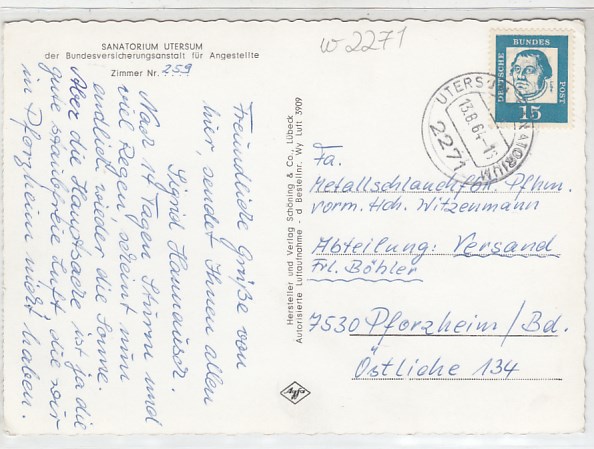 SANATORIUM UTERSUM
der Bundesversicherungsanstalt für Angestellte
Zimmer Nr. 259
w 2271
DEUTSCHE BUNDES POST
15
UTERSUM SANATORIUM
13.8.64
2271
Freundliche Grüße von
hier, sendet Ihnen allen
Sigrid Hannausch.
Nach 14 Tagen Sturm und
viel Regen, scheint nun
endlich wieder die Sonne.
Aber die Hauptsache ist ja die
gute staubfreie Luft, die wir
in Pforzheim nicht haben.
Hersteller und Verlag Schöning & Co., Lübeck
Autorisierte Luftaufnahme - d Bestellnr. Wy Luft 3909
Agfa
Fa.
Metallschlauchfbr. Pfhm.
vorm. Hch. Witzenmann
Abteilung: Versand
Frl. Böhler
7530 Pforzheim/Bd.
Östliche 134